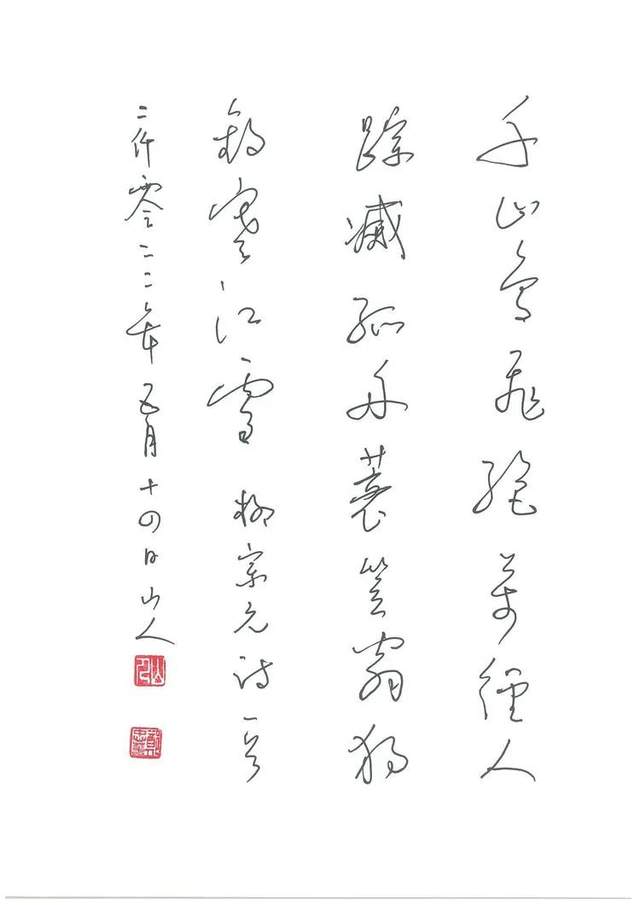 千山鳥飛絕萬徑人
踪滅孤舟蓑笠翁獨
釣寒江雪 柳宗元詩一首
二仟零二二年五月十四日山人
山人